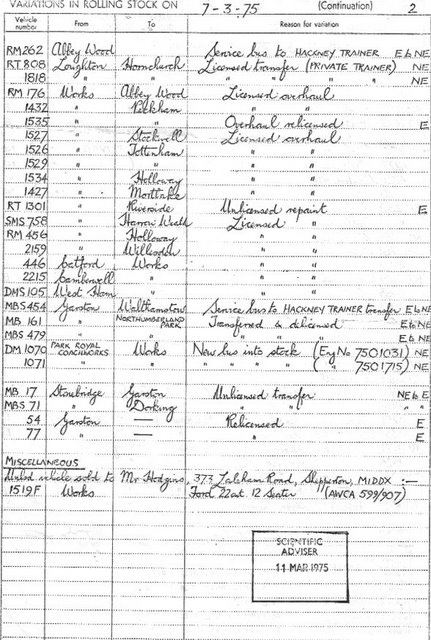 VARIATIONS IN ROLLING STOCK ON 7-3-75 (Continuation) 2
Vehicle number From To Reason for variation
RM262 Abbey Wood Service bus to HACKNEY TRAINER E to NE
RT 808 Loughton Hornchurch Licensed transfer (PRIVATE TRAINER) NE
1818 " " " " " " NE
RM 176 Works Abbey Wood Licensed overhaul
1432 " Peckham "
1535 " " Overhaul relicensed E
1527 " Stockwell Licensed overhaul
1526 " Tottenham " "
1529 " " " "
1534 " Holloway " "
1427 " Mortlake " "
RT 1301 " Riverside Unlicensed repaint E
SMS 758 " Harrow Weald Licensed "
RM 456 " Holloway " "
2159 " Willesden " "
446 Catford Works " "
2215 Camberwell " " "
DMS 105 West Ham " " "
MBS 454 Garston Walthamstow Service bus to HACKNEY TRAINER transfer E to NE
MB 161 " NORTHUMBERLAND PARK Transferred & delicensed E to NE
MBS 479 " " " " E to NE
DM 1070 PARK ROYAL COACHWORKS Works New bus into stock (Eng No 7501031) NE
1071 " " " " " ( " 7501715) NE
MB 17 Stonebridge Garston Unlicensed transfer NE to E
MBS 71 " Dorking " " " " "
54 Garston — Relicensed E
77 " — " E
MISCELLANEOUS
vehicle sold to Mr Hodgins, 373 Laleham Road, Shepperton, MIDDX :—
1519F Works Ford 22cwt. 12 Seater (AWCA 599/907)
SCIENTIFIC
ADVISER
11 MAR 1975